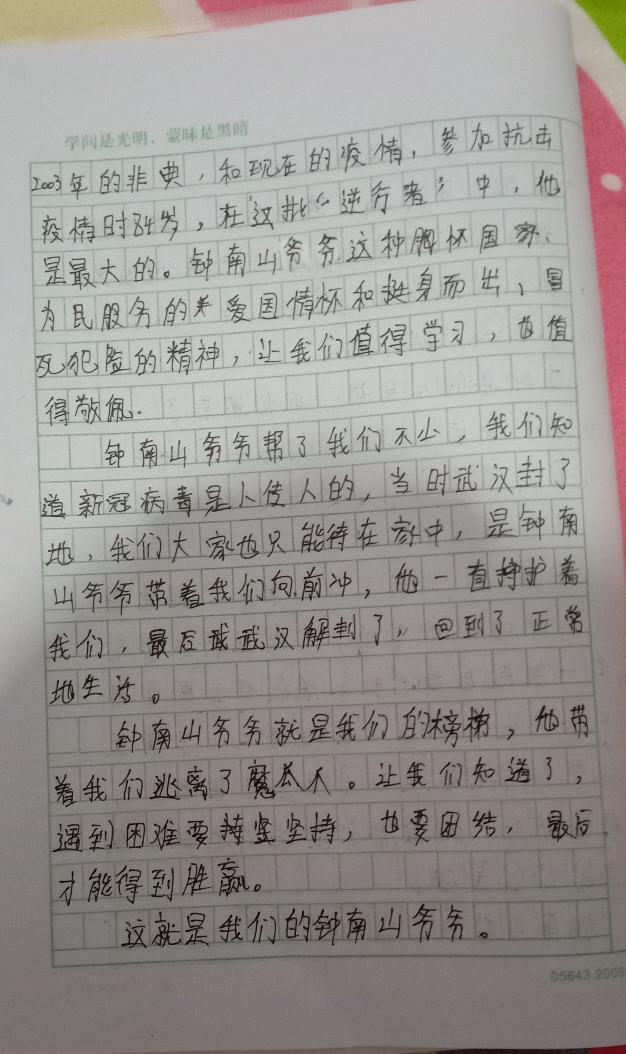 学问是光明，蒙昧是黑暗
2003年的非典，和现在的疫情，参加抗击
疫情时84岁，在这批“逆行者”中，他
是最大的。钟南山爷爷这种胸怀国家、
为民服务的 爱国情怀和挺身而出，冒
死犯险的精神，让我们值得学习，也值
得敬佩.
钟南山爷爷帮了我们不少，我们知
道新冠病毒是人传人的，当时武汉封了
地，我们大家也只能待在家中，是钟南
山爷爷带着我们向前冲，他一直 护着
我们，最后武汉解封了，回到了正常
地生活。
钟南山爷爷就是我们的榜梯，他带
着我们逃离了魔爪 。让我们知道了，
遇到困难要持坚坚持，也要团结，最后
才能得到胜赢。
这就是我们的钟南山爷爷。
05643.2009